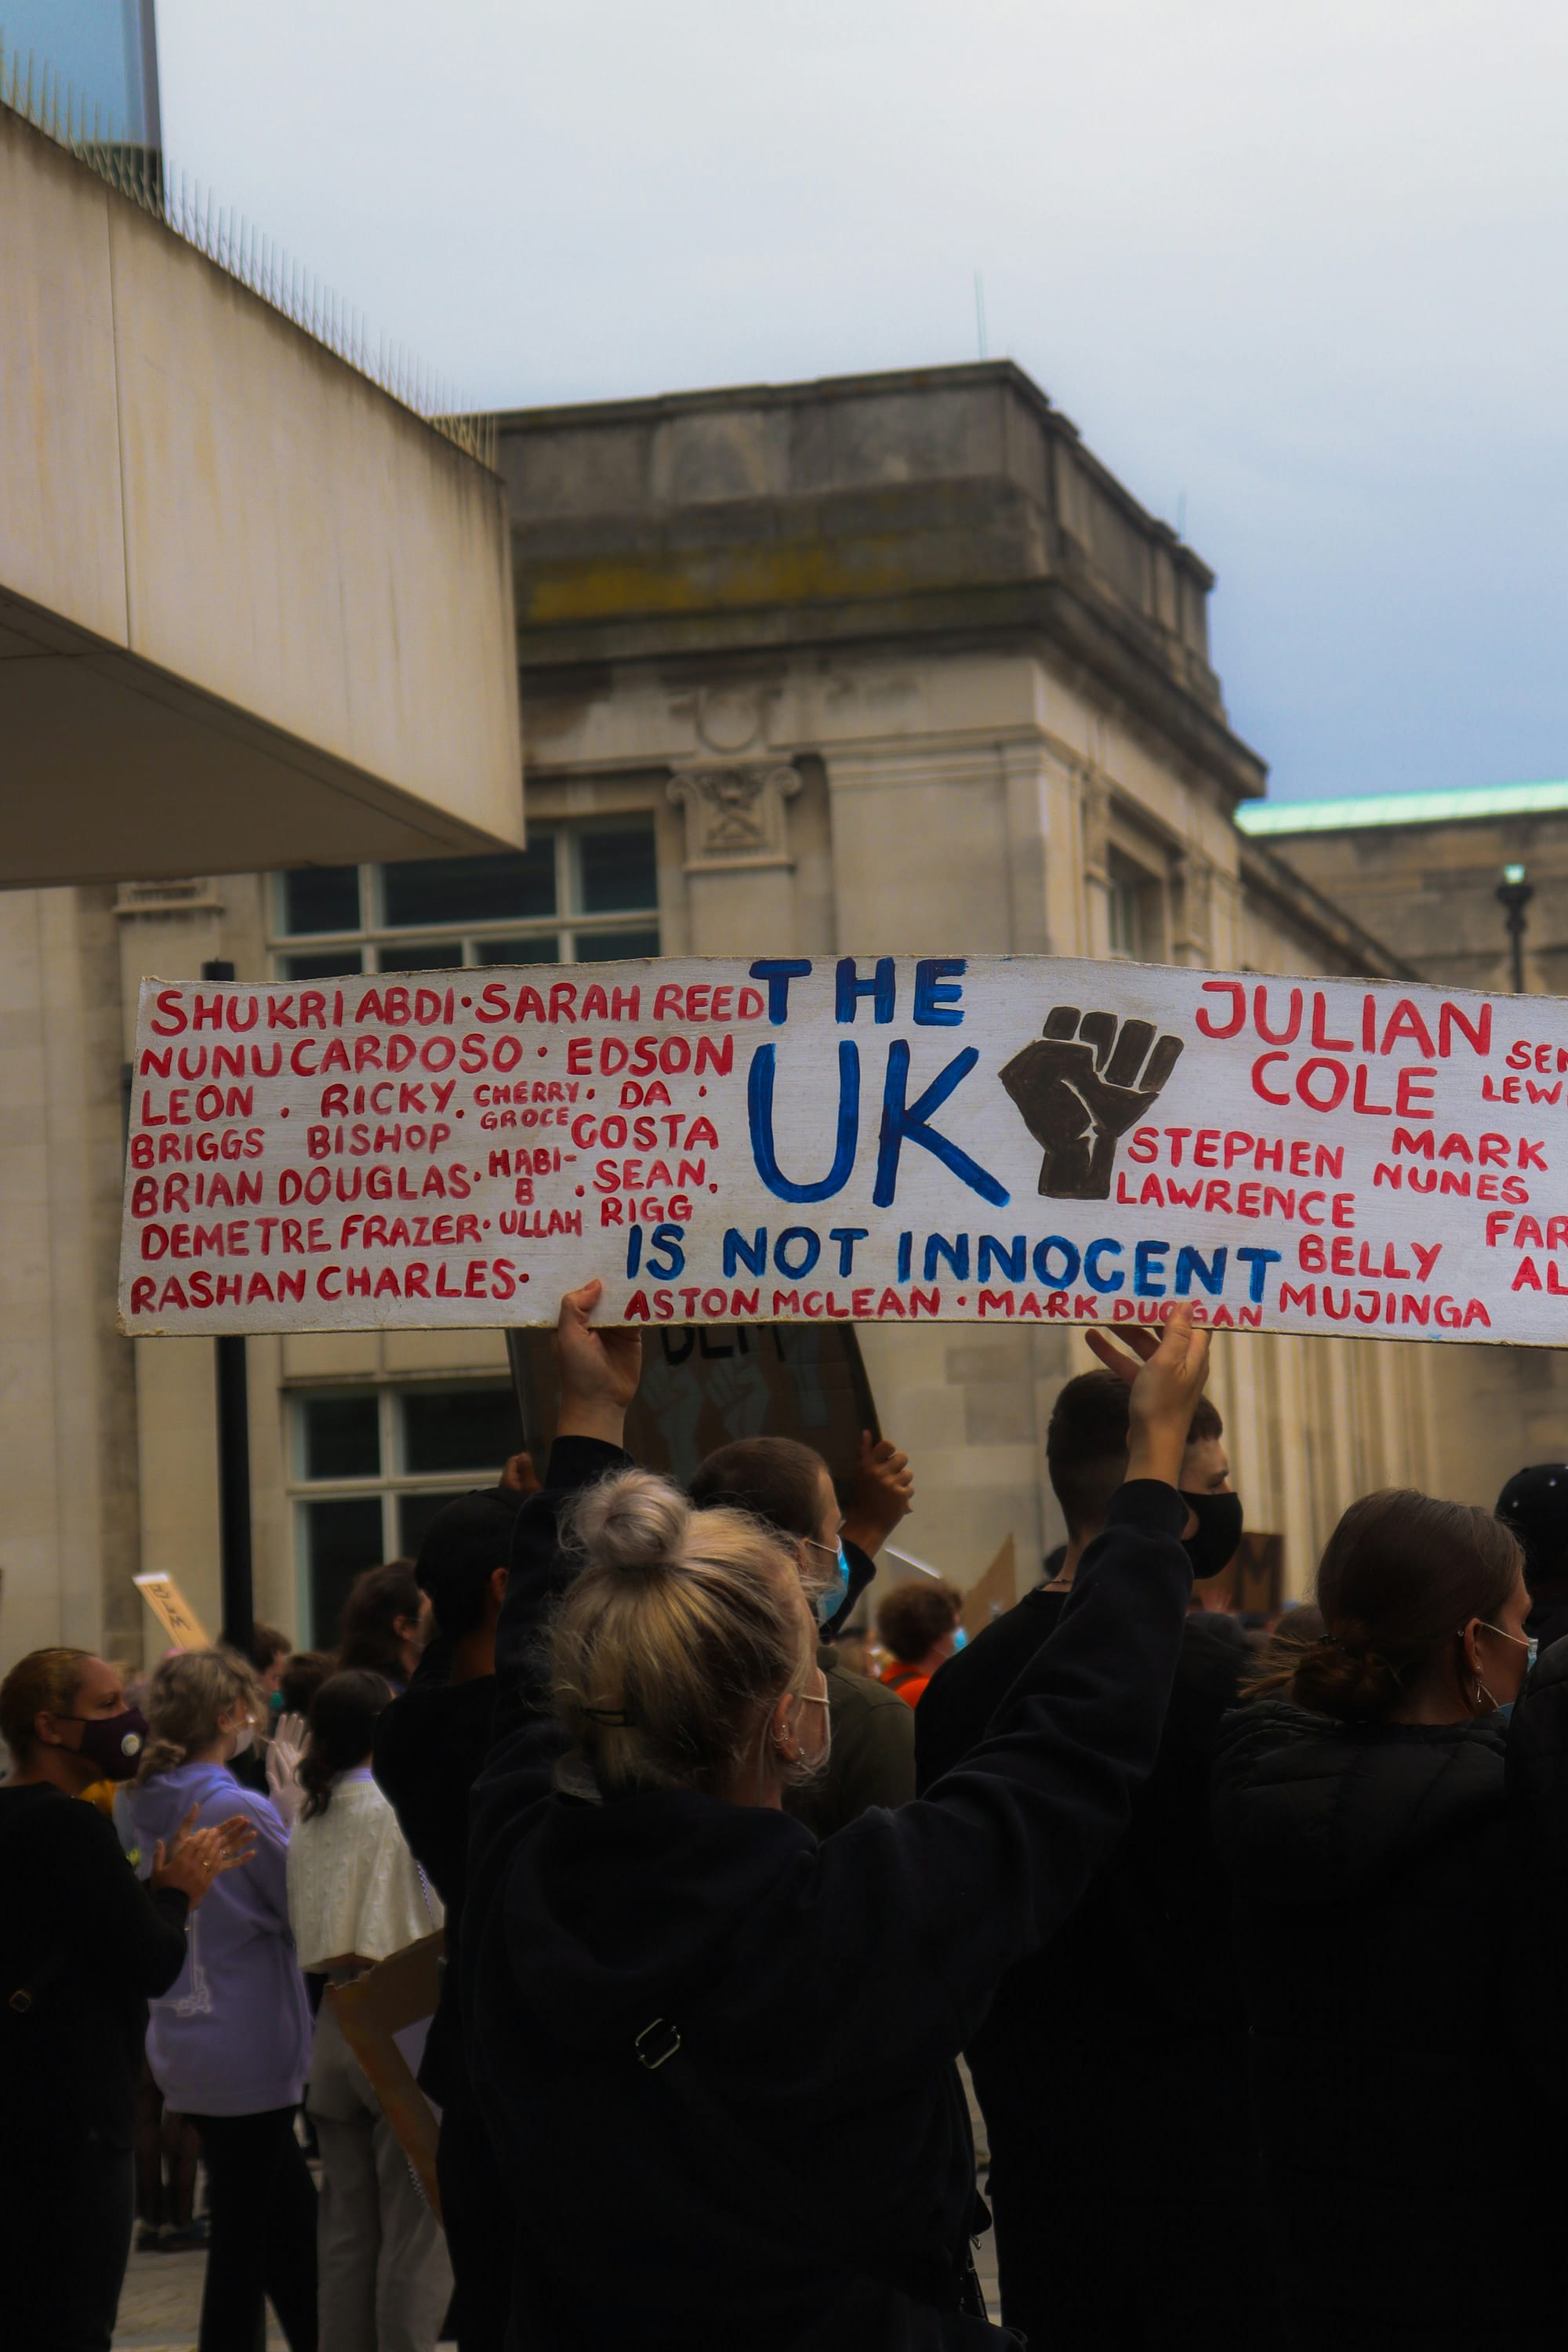 SHUKRI ABDI · SARAH REED
NUNU CARDOSO · EDSON
DA ·
COSTA
LEON
BRIGGS
. RICKY.
BISHOP
CHERRY.
GROCE
BRIAN DOUGLAS.
HABI-
B
ULLAH
. SEAN.
RIGG
DEMETRE FRAZER.
RASHAN CHARLES.
THE
UK
IS NOT INNOCENT
ASTON MCLEAN · MARK DUGGAN
JULIAN
COLE
SEN
LEWI
STEPHEN
LAWRENCE
MARK
NUNES
BELLY
MUJINGA
FAR
AL
BLM